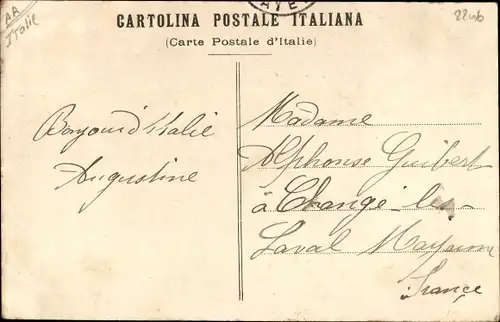 AA
Italie
AYE
2206
CARTOLINA POSTALE ITALIANA
(Carte Postale d'Italie)
Bonjour d'Italie
Augustine
Madame
Alphonse Guibert
à Changé-les-
Laval Mayenne
France